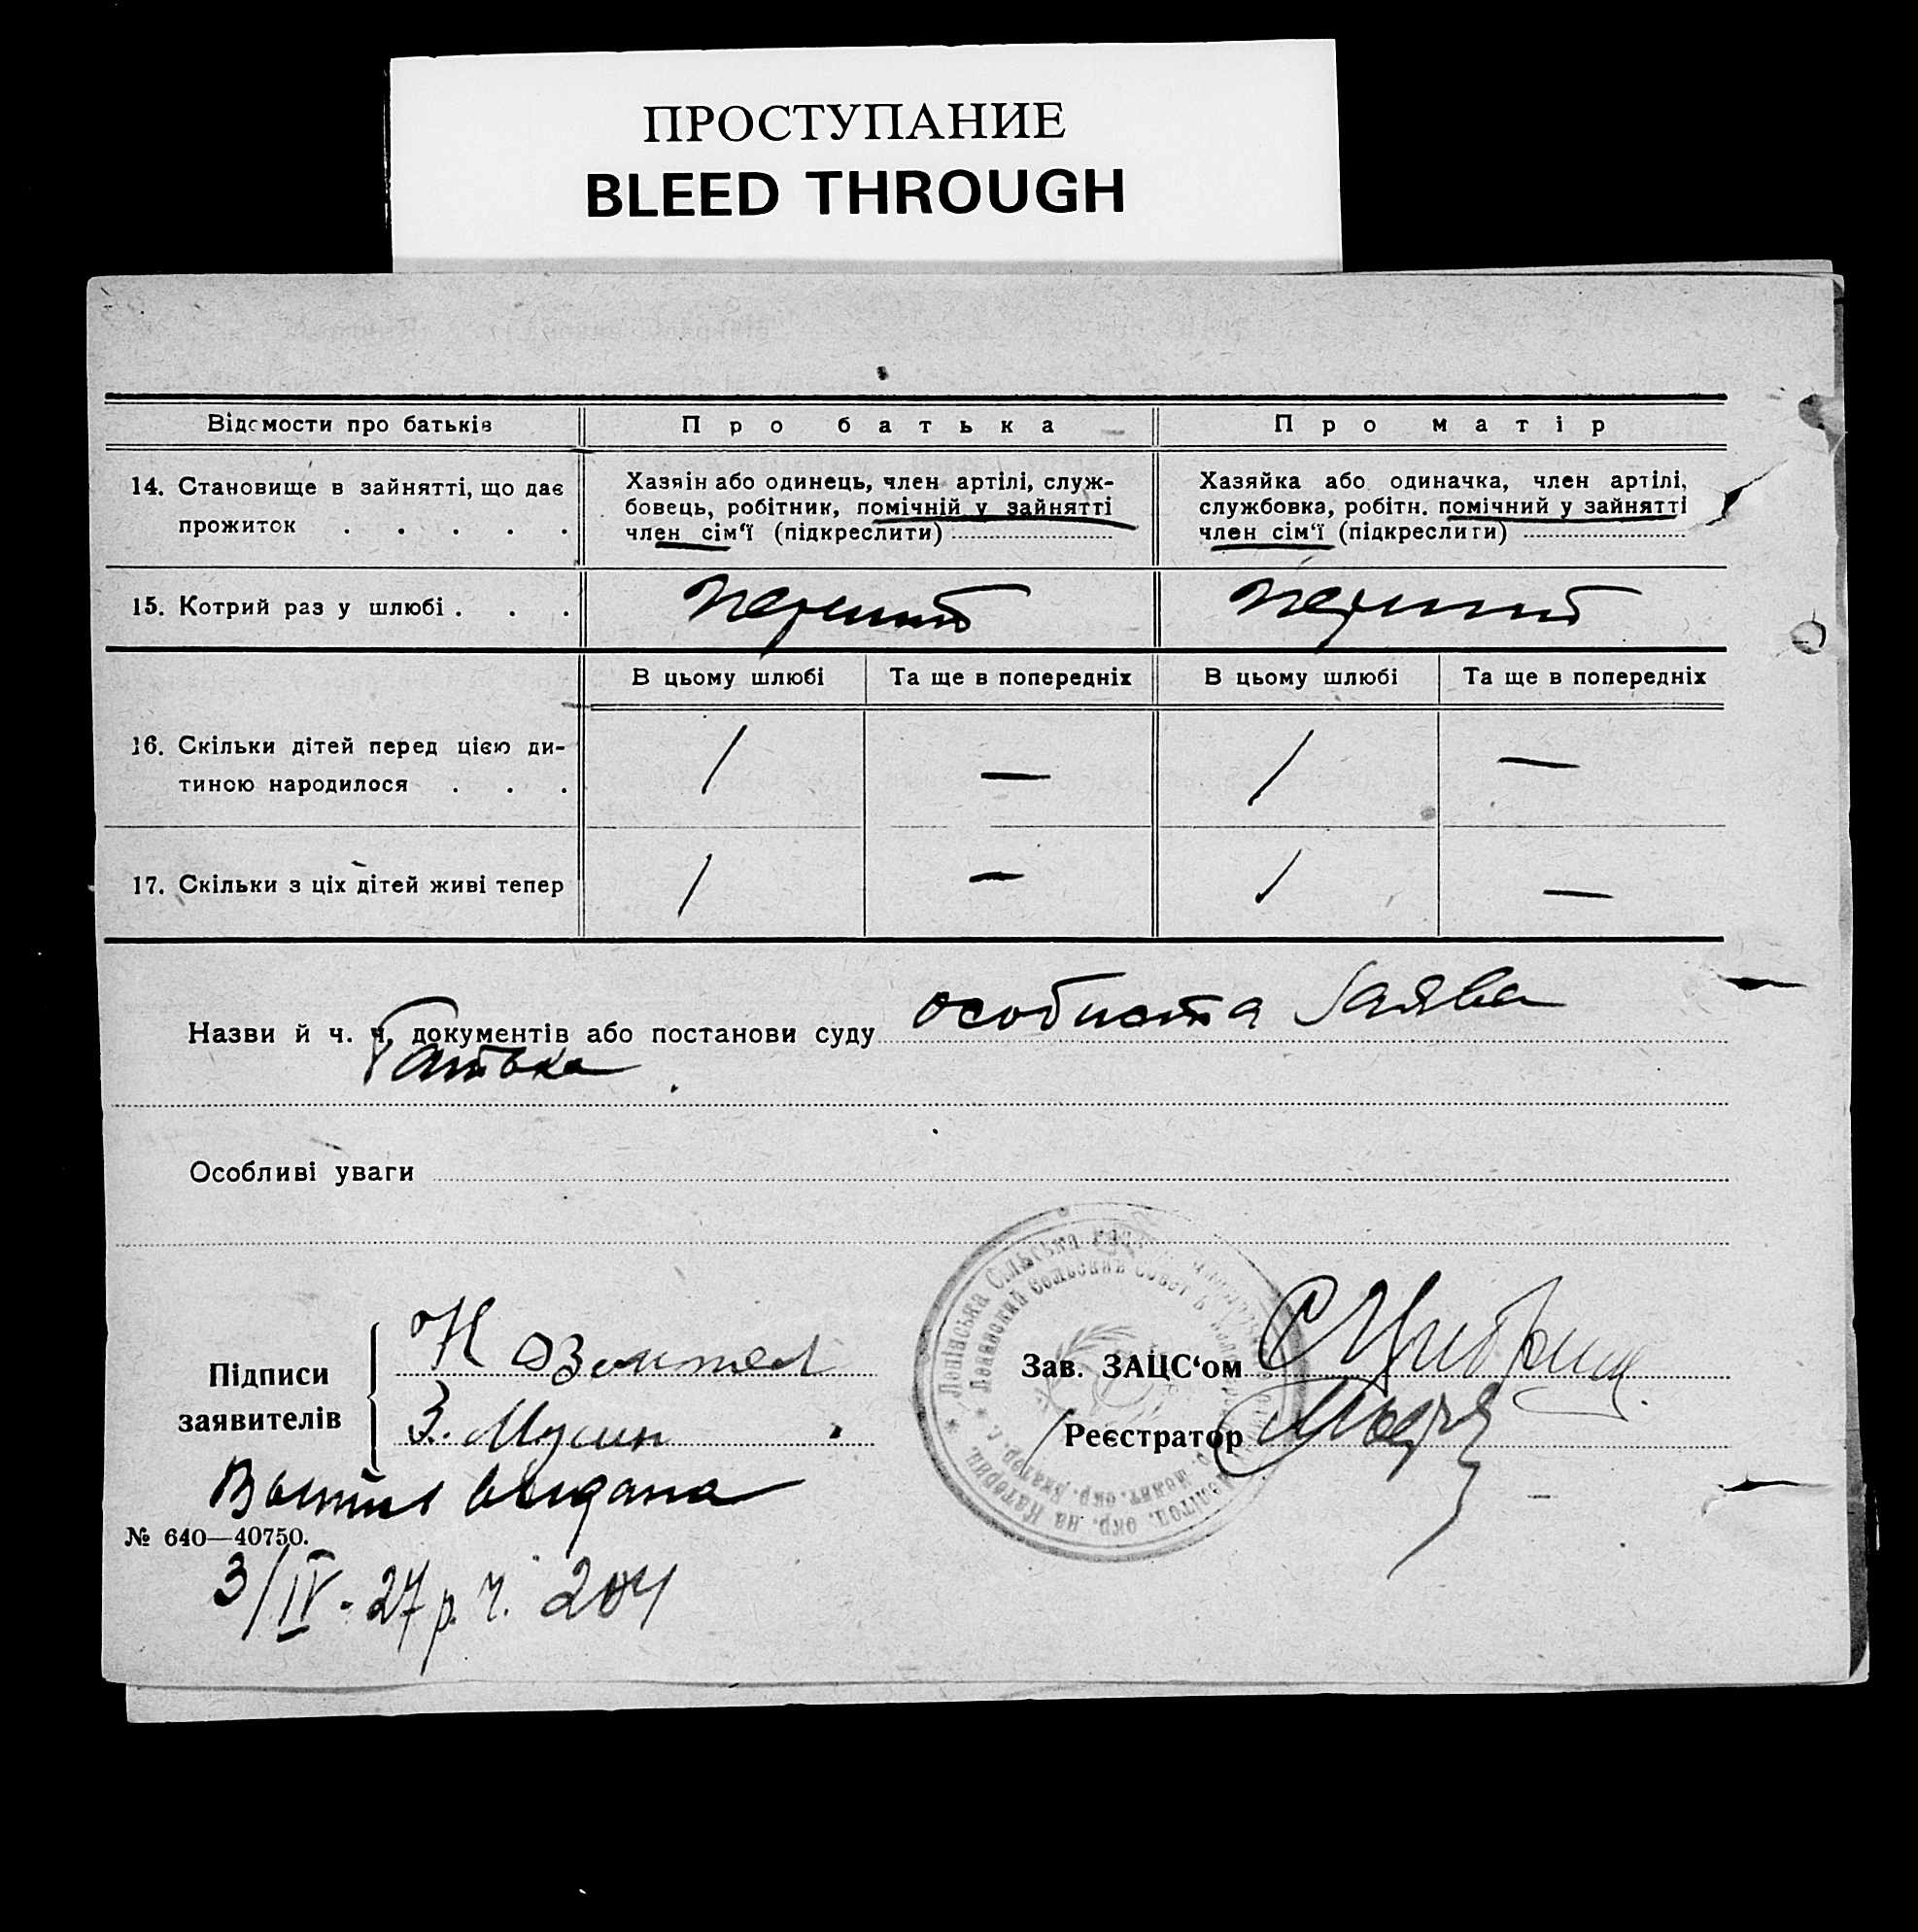 ПРОСТУПАНИЕ
BLEED THROUGH
Відомости про батьків
Про батька
Про матір
14. Становище в зайнятті, що дає
прожиток . . . . .
Хазяін або одинець, член артілі, служ-
бовець, робітник, помічній у зайнятті
член сім‘ї (підкреслити)
Хазяйка або одиначка, член артілі,
службовка, робітн. помічний у зайнятті
член сім‘ї (підкреслити)
15. Котрий раз у шлюбі . . .
перший
перший
В цьому шлюбі
Та ще в попередніх
В цьому шлюбі
Та ще в попередніх
16. Скільки дітей перед цією ди-
тиною народилося . . .
1
—
1
—
17. Скільки з ціх дітей живі тепер
1
—
1
—
Назви й ч. ч. документів або постанови суду особиста заява
батька
Особливі уваги
Підписи
заявителів
З. Мусип
Зав. ЗАЦС‘ом
Реєстратор
Ленінська Сільська Рада
Ленинский Сельский Совет
Витяг видана
№ 640—40750.
3/IV - 27 р. Ч. 204